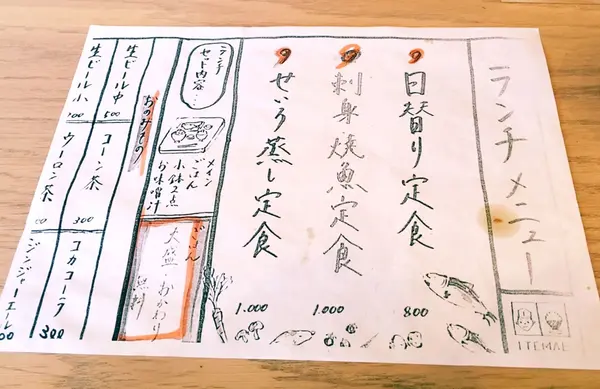 ランチ メニュー
ITEMAE
日替り定食
800
刺身 焼魚定食
1.000
せいろ蒸し定食
1.000
ランチ
セット内容
メイン
ごはん
小鉢2点
お味噌汁
ごはん
大盛 おかわり
無料
おのみもの
生ビール中
500
コーン茶
300
コカコーラ
300
生ビール小
ウーロン茶
ジンジャーエール